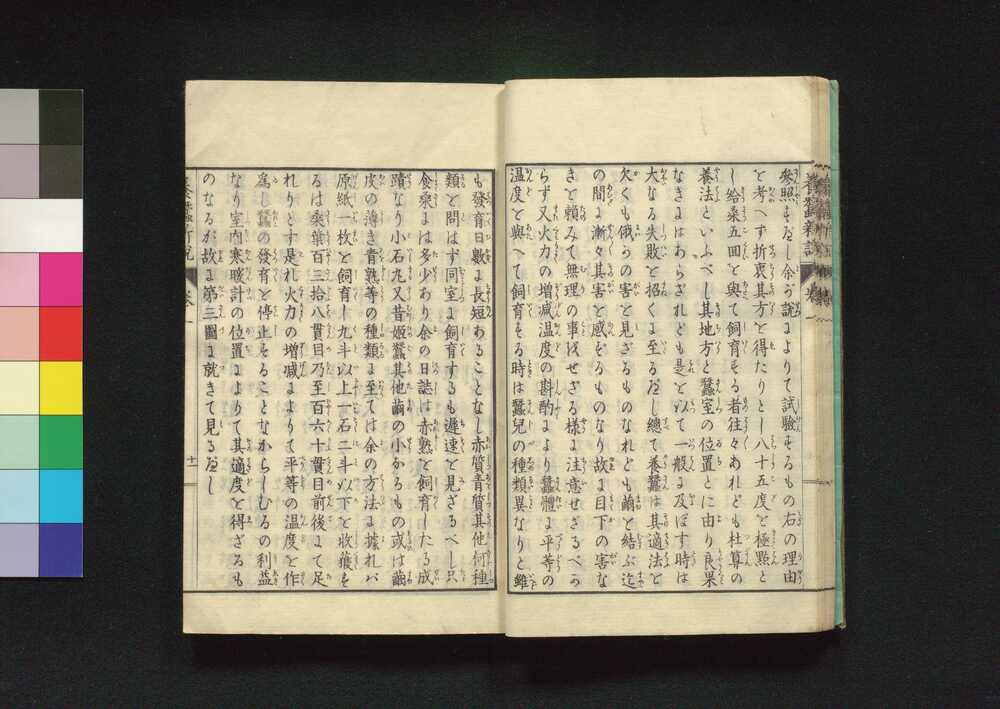 養蠶新説 卷一
參照すべし余が説によりて試驗するもの右の理由
を考へず折衷其方を得たりとし八十五度を極點と
し給桑五回を與て飼育する者往々あれども杜撰の
養法といふべし其地方と蠶室の位置とに由り良果
なきにはあらざれども是を以て一般に及ぼす時は
大なる失敗を招くに至るべし總て養蠶は其適法を
欠くも俄らの害を見ざるものなれども繭を結ぶ迄
の間に漸々其害を感ずるものなり故に目下の害な
きを頼みて無理の事なせざる樣に注意せざるべか
らず又火力の増减温度の斟酌により蠶體に平等の
温度を與へて飼育する時は蠶兒の種類異なりと雖
も發育日數に長短あることなし赤質青質其他何種
類を問はず同室に飼育するも遲速を見ざるべし只
食桑には多少あり余の日誌は赤熟を飼育したる成
蹟なり小石丸又昔姫蠶其他繭の小なるもの或は繭
皮の薄き青熟等の種類に至ては余の方法に據れバ
原紙一枚を飼育し九斗以上一石二斗以下を收獲を
るは桒葉百三拾八貫目乃至百六十貫目前後にて足
れりとす是れ火力の増减によりて平等の温度を作
爲し蠶の發育を停止することなからしむるの利益
なり室内寒暖計の位置によりて其適度を得ざるも
のなるが故に第三圖に就きて見るべし
養蠶新説 卷一 十一